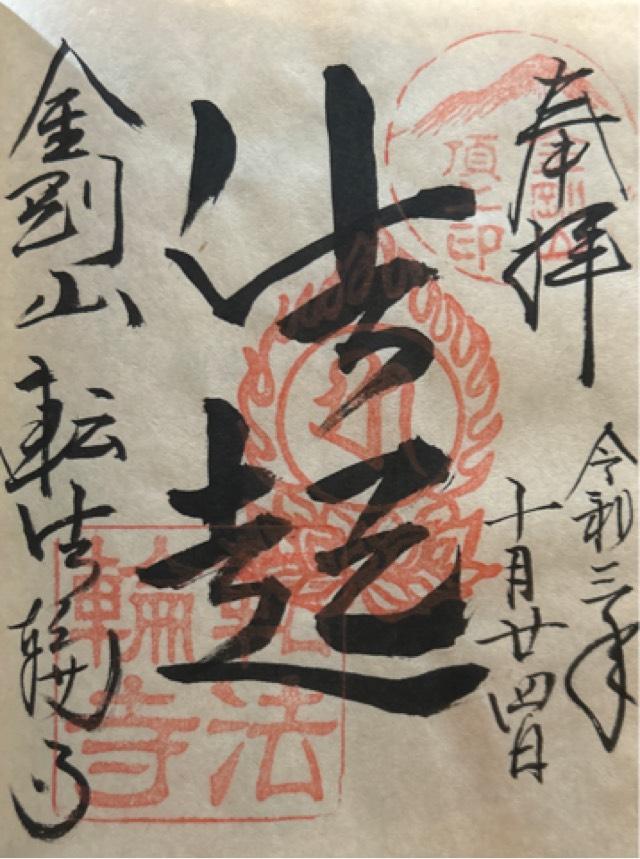 奉拝
令和三年
十月廿四日
法起
金剛山転法輪寺
金剛山
頂上印
転法
輪寺